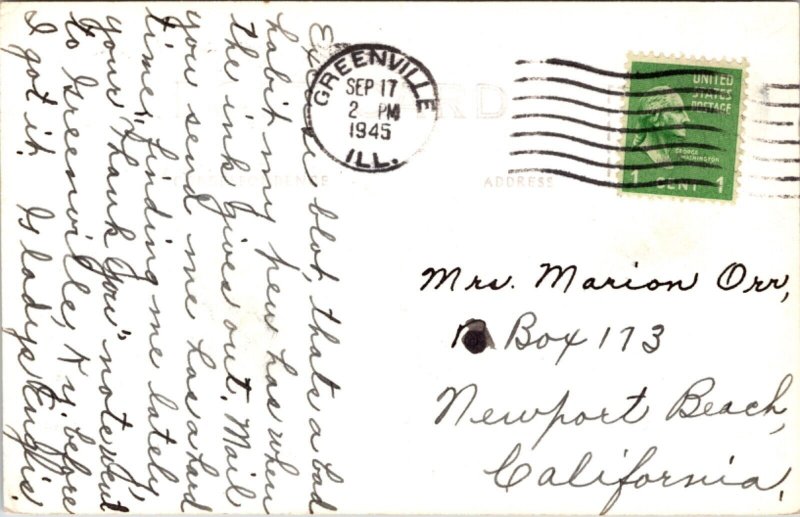 GREENVILLE
SEP 17
2 PM
1945
ILL.
UNITED
STATES
POSTAGE
GEORGE
WASHINGTON
1 CENT 1
CORRESPONDENCE
ADDRESS
Mrs. Marion Orr,
Box 173
Newport Beach,
California.
blot, thats a bad
habit my pen has when
the ink gives out. Mail
you send me has a hard
time finding me lately,
your "Thank You" note went
to Greenville, Ky. before
I got it. Gladys